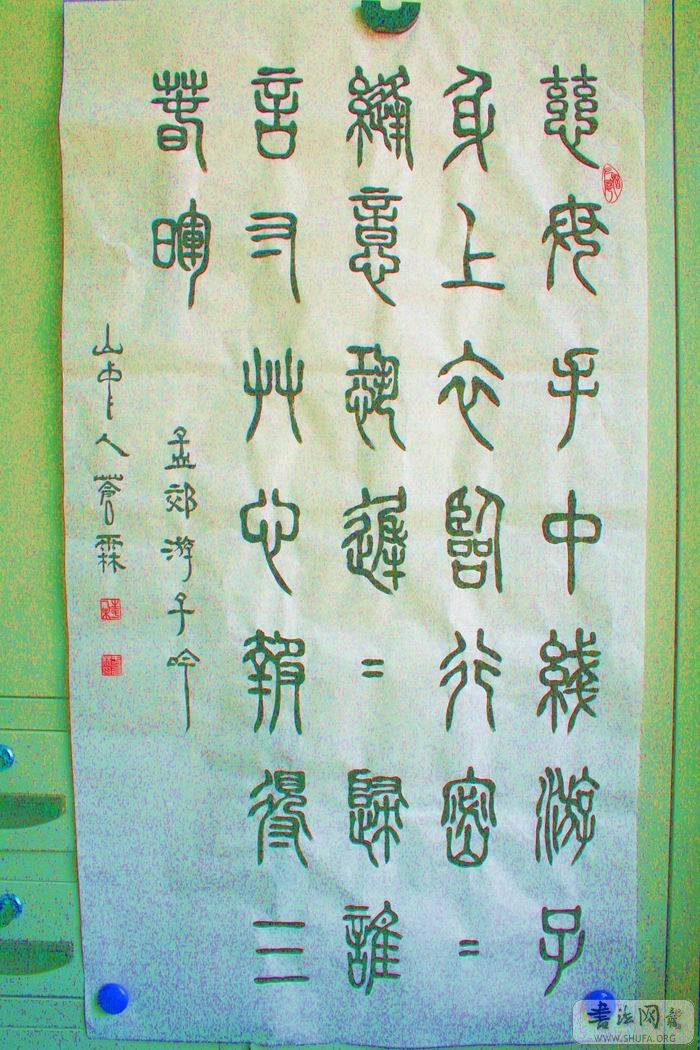 慈母手中綫游子
身上衣臨行密=
縫意恐遲=歸誰
言寸艸心報得三
春暉
孟郊游子吟
山中人蒼霖
書法网
WWW.SHUFA.ORG